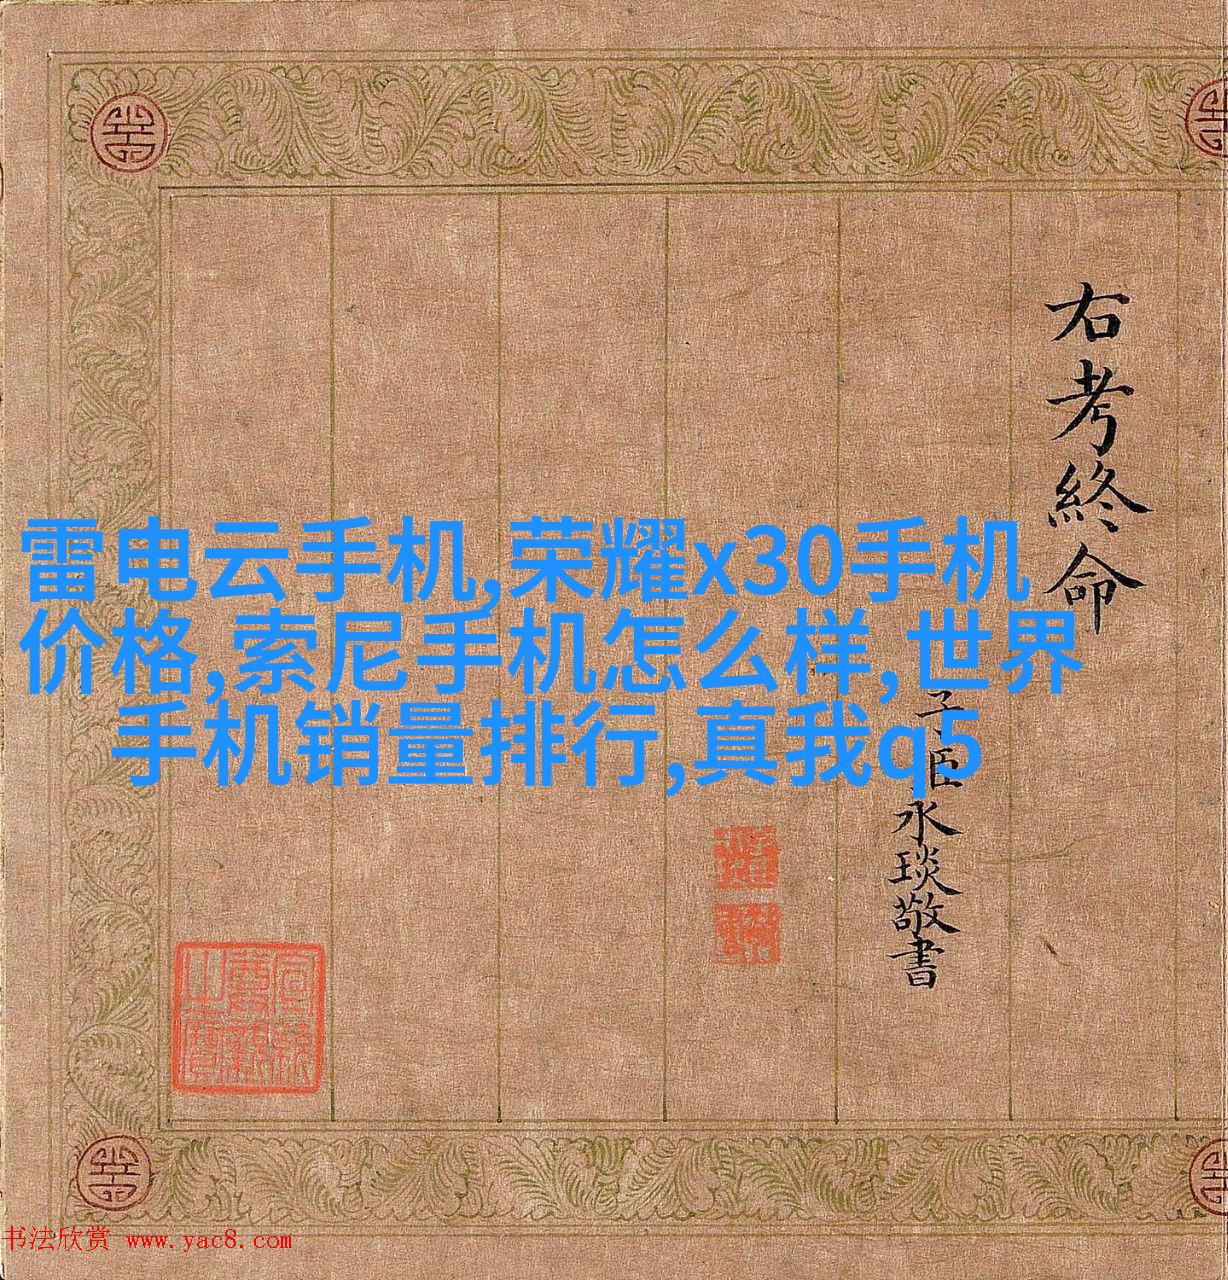 右考終命
子臣永琰敬書
雷电云手机,荣耀x30手机
价格,索尼手机怎么样,世界
手机销量排行,真我q5
书法欣赏 www.yac8.com